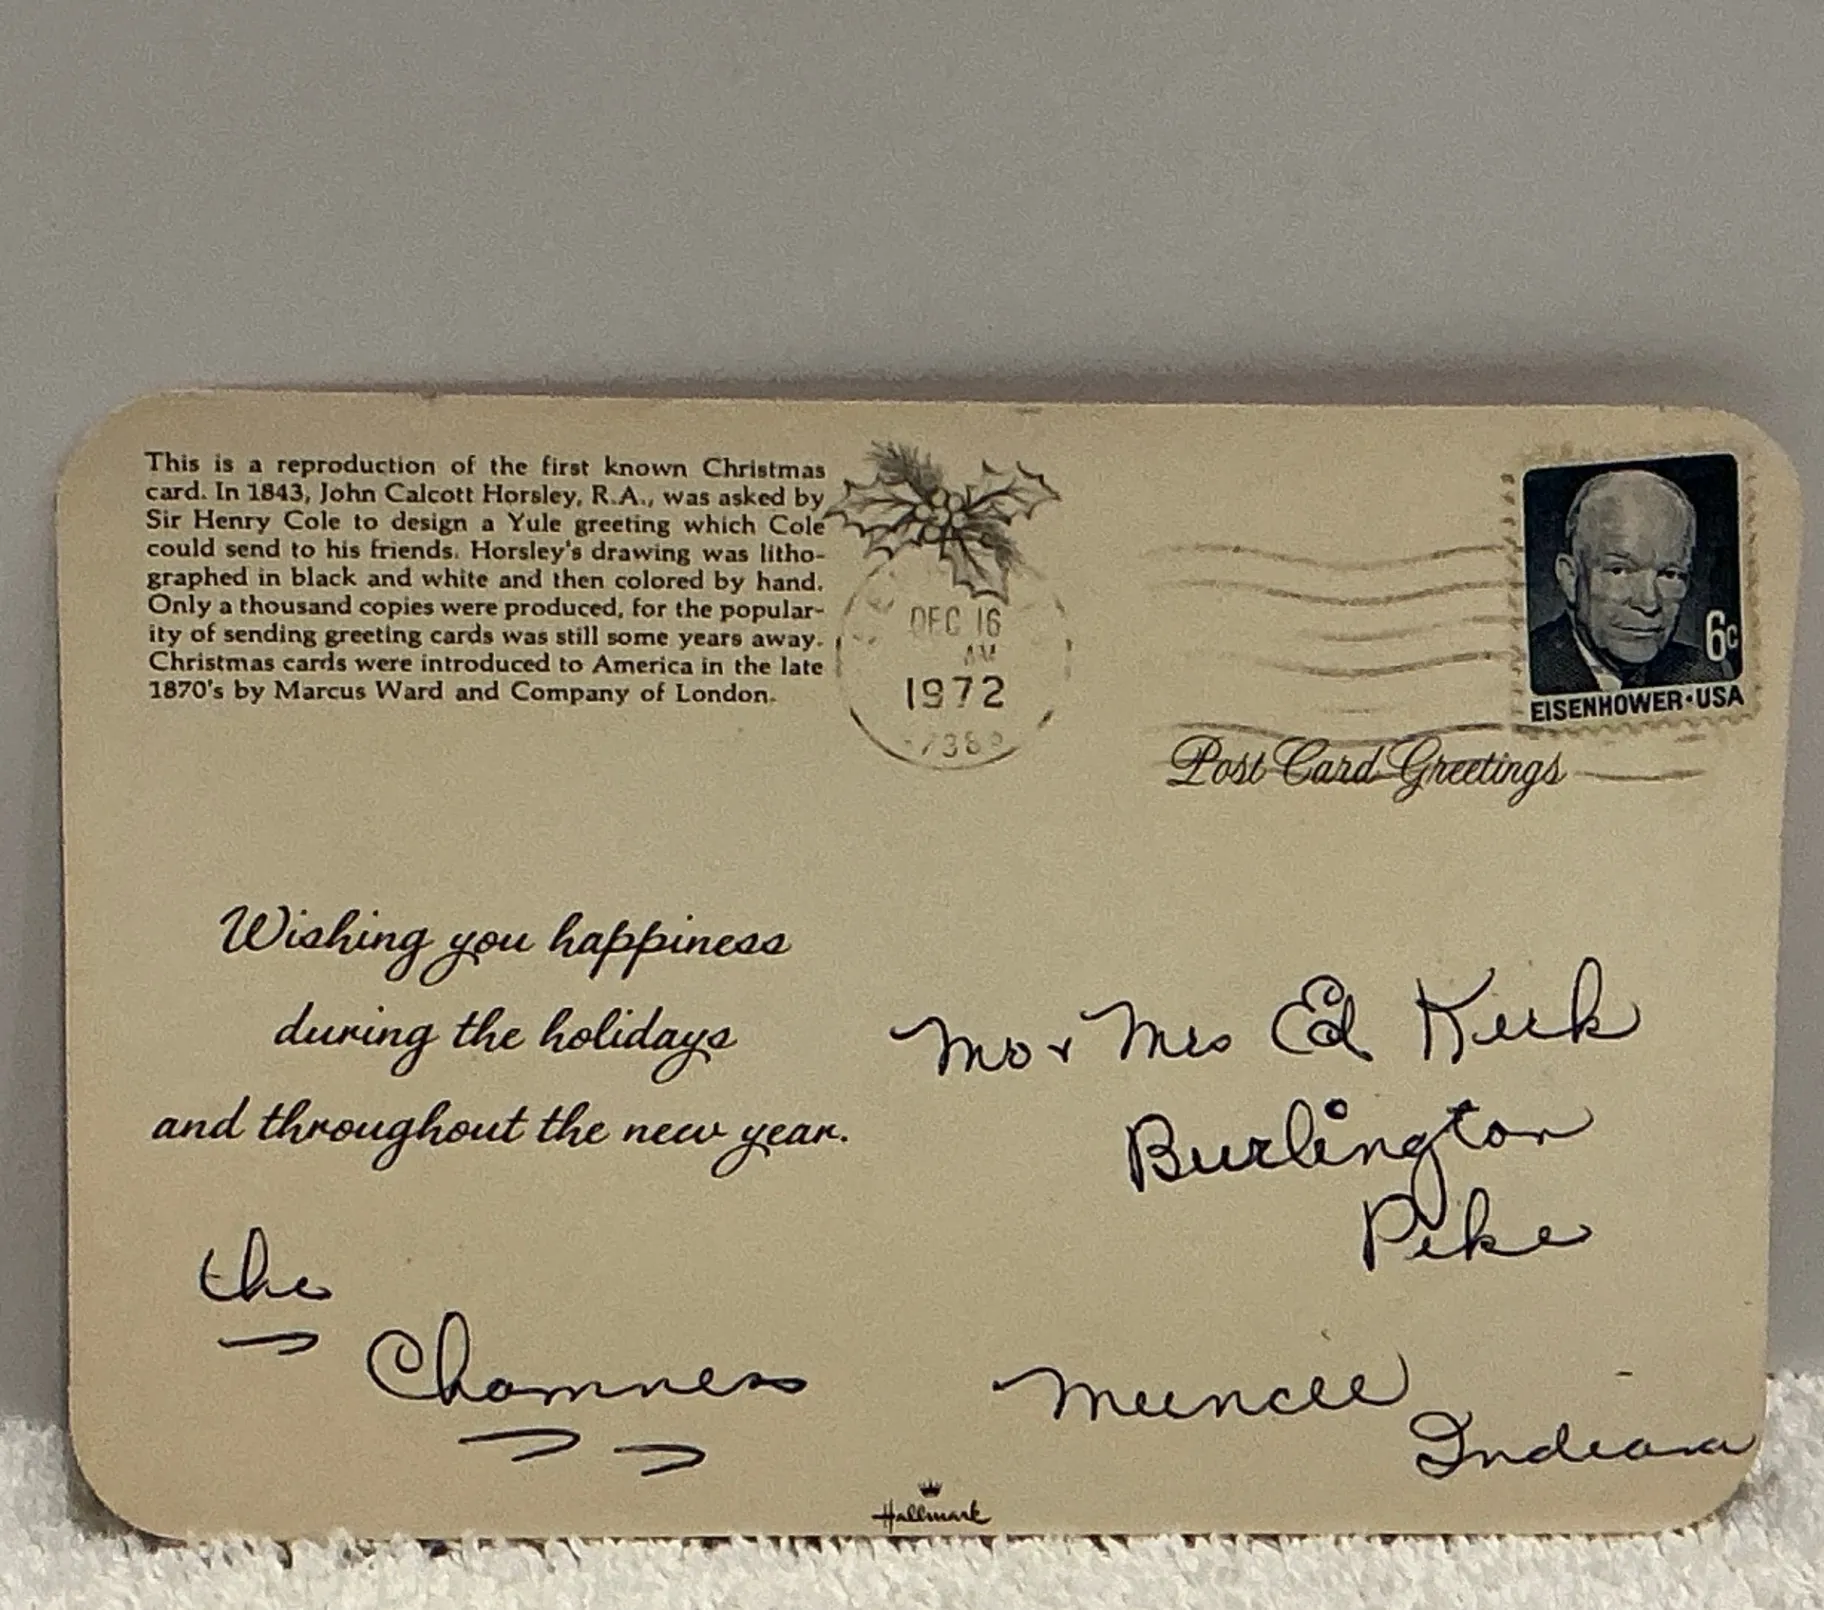 This is a reproduction of the first known Christmas
card. In 1843, John Calcott Horsley, R.A., was asked by
Sir Henry Cole to design a Yule greeting which Cole
could send to his friends. Horsley's drawing was litho-
graphed in black and white and then colored by hand.
Only a thousand copies were produced, for the popular-
ity of sending greeting cards was still some years away.
Christmas cards were introduced to America in the late
1870's by Marcus Ward and Company of London.
DEC 16
AM
1972
6c
EISENHOWER·USA
Post Card Greetings
Wishing you happiness
during the holidays
and throughout the new year.
the
Chamness
Mr + Mrs Ed Kirk
Burlington
Pike
Muncie
Indiana
Hallmark